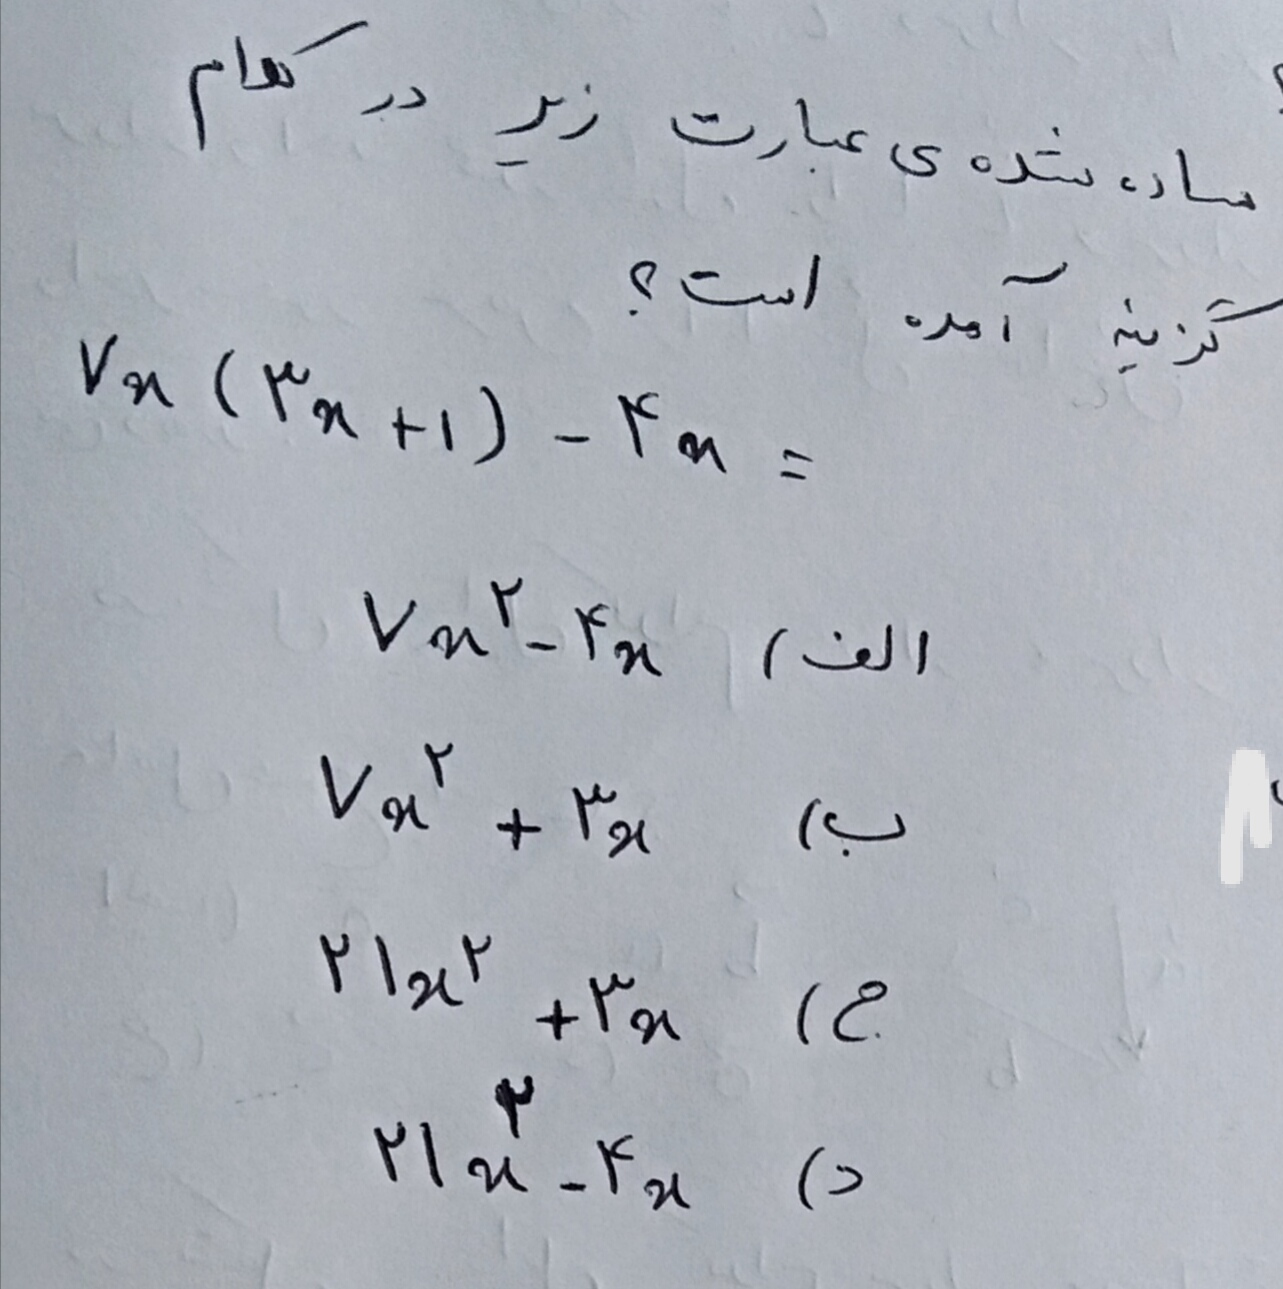 ساده شده ی عبارت زیر در کدام
گزینه آمده است؟
۷x (۳x +۱) - ۴x =
الف) ۷x^۲ - ۴x
ب) ۷x^۲ + ۳x
ج) ۲۱x^۲ + ۳x
د) ۲۱x^۲ - ۴x